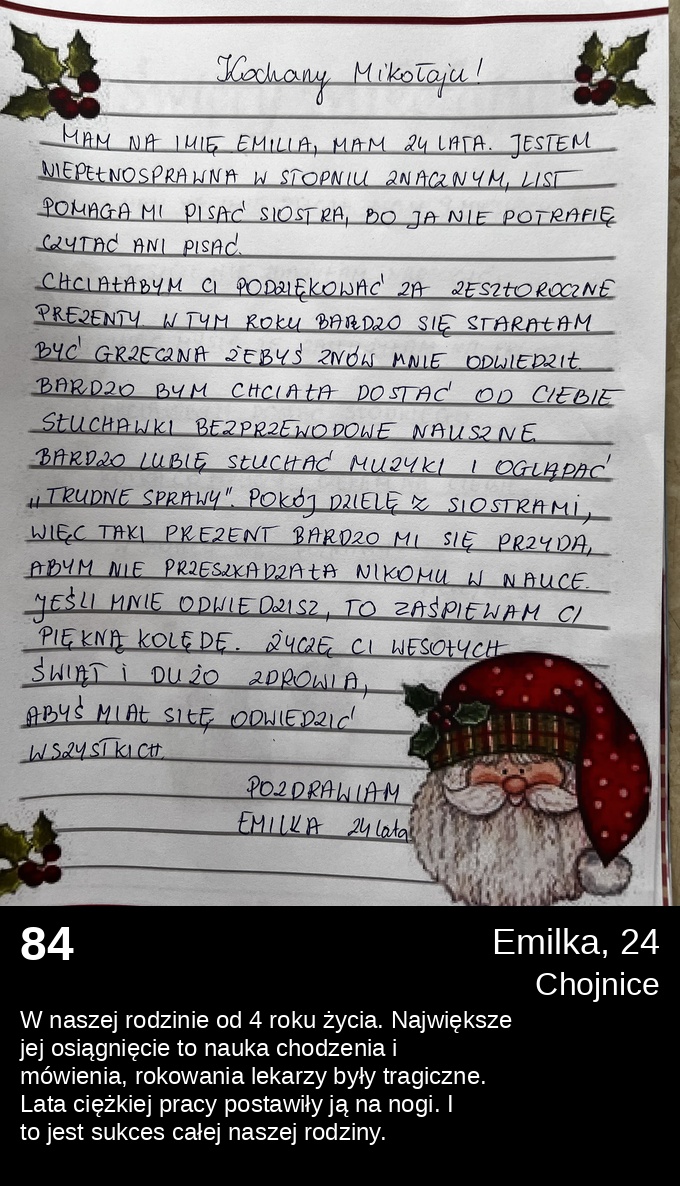 Kochany Mikołaju!
MAM NA IMIĘ EMILIA, MAM 24 LATA. JESTEM
NIEPEŁNOSPRAWNA W STOPNIU ZNACZNYM, LIST
POMAGA MI PISAĆ SIOSTRA, BO JA NIE POTRAFIĘ
CZYTAĆ ANI PISAĆ.
CHCIAŁABYM CI PODZIĘKOWAĆ ZA ZESZŁOROCZNE
PREZENTY. W TYM ROKU BARDZO SIĘ STARAŁAM
BYĆ GRZECZNA ŻEBYŚ ZNÓW MNIE ODWIEDZIŁ.
BARDZO BYM CHCIAŁA DOSTAĆ OD CIEBIE
SŁUCHAWKI BEZPRZEWODOWE NAUSZNE.
BARDZO LUBIĘ SŁUCHAĆ MUZYKI I OGLĄDAĆ
„TRUDNE SPRAWY". POKÓJ DZIELĘ Z SIOSTRAMI,
WIĘC TAKI PREZENT BARDZO MI SIĘ PRZYDA,
ABYM NIE PRZESZKADZAŁA NIKOMU W NAUCE.
JEŚLI MNIE ODWIEDZISZ, TO ZAŚPIEWAM CI
PIĘKNĄ KOLĘDĘ. ŻYCZĘ CI WESOŁYCH
ŚWIĄT I DUŻO ZDROWIA,
ABYŚ MIAŁ SIŁĘ ODWIEDZIĆ
WSZYSTKICH.
POZDRAWIAM
EMILKA 24 lata
84
Emilka, 24
Chojnice
W naszej rodzinie od 4 roku życia. Największe
jej osiągnięcie to nauka chodzenia i
mówienia, rokowania lekarzy były tragiczne.
Lata ciężkiej pracy postawiły ją na nogi. I
to jest sukces całej naszej rodziny.